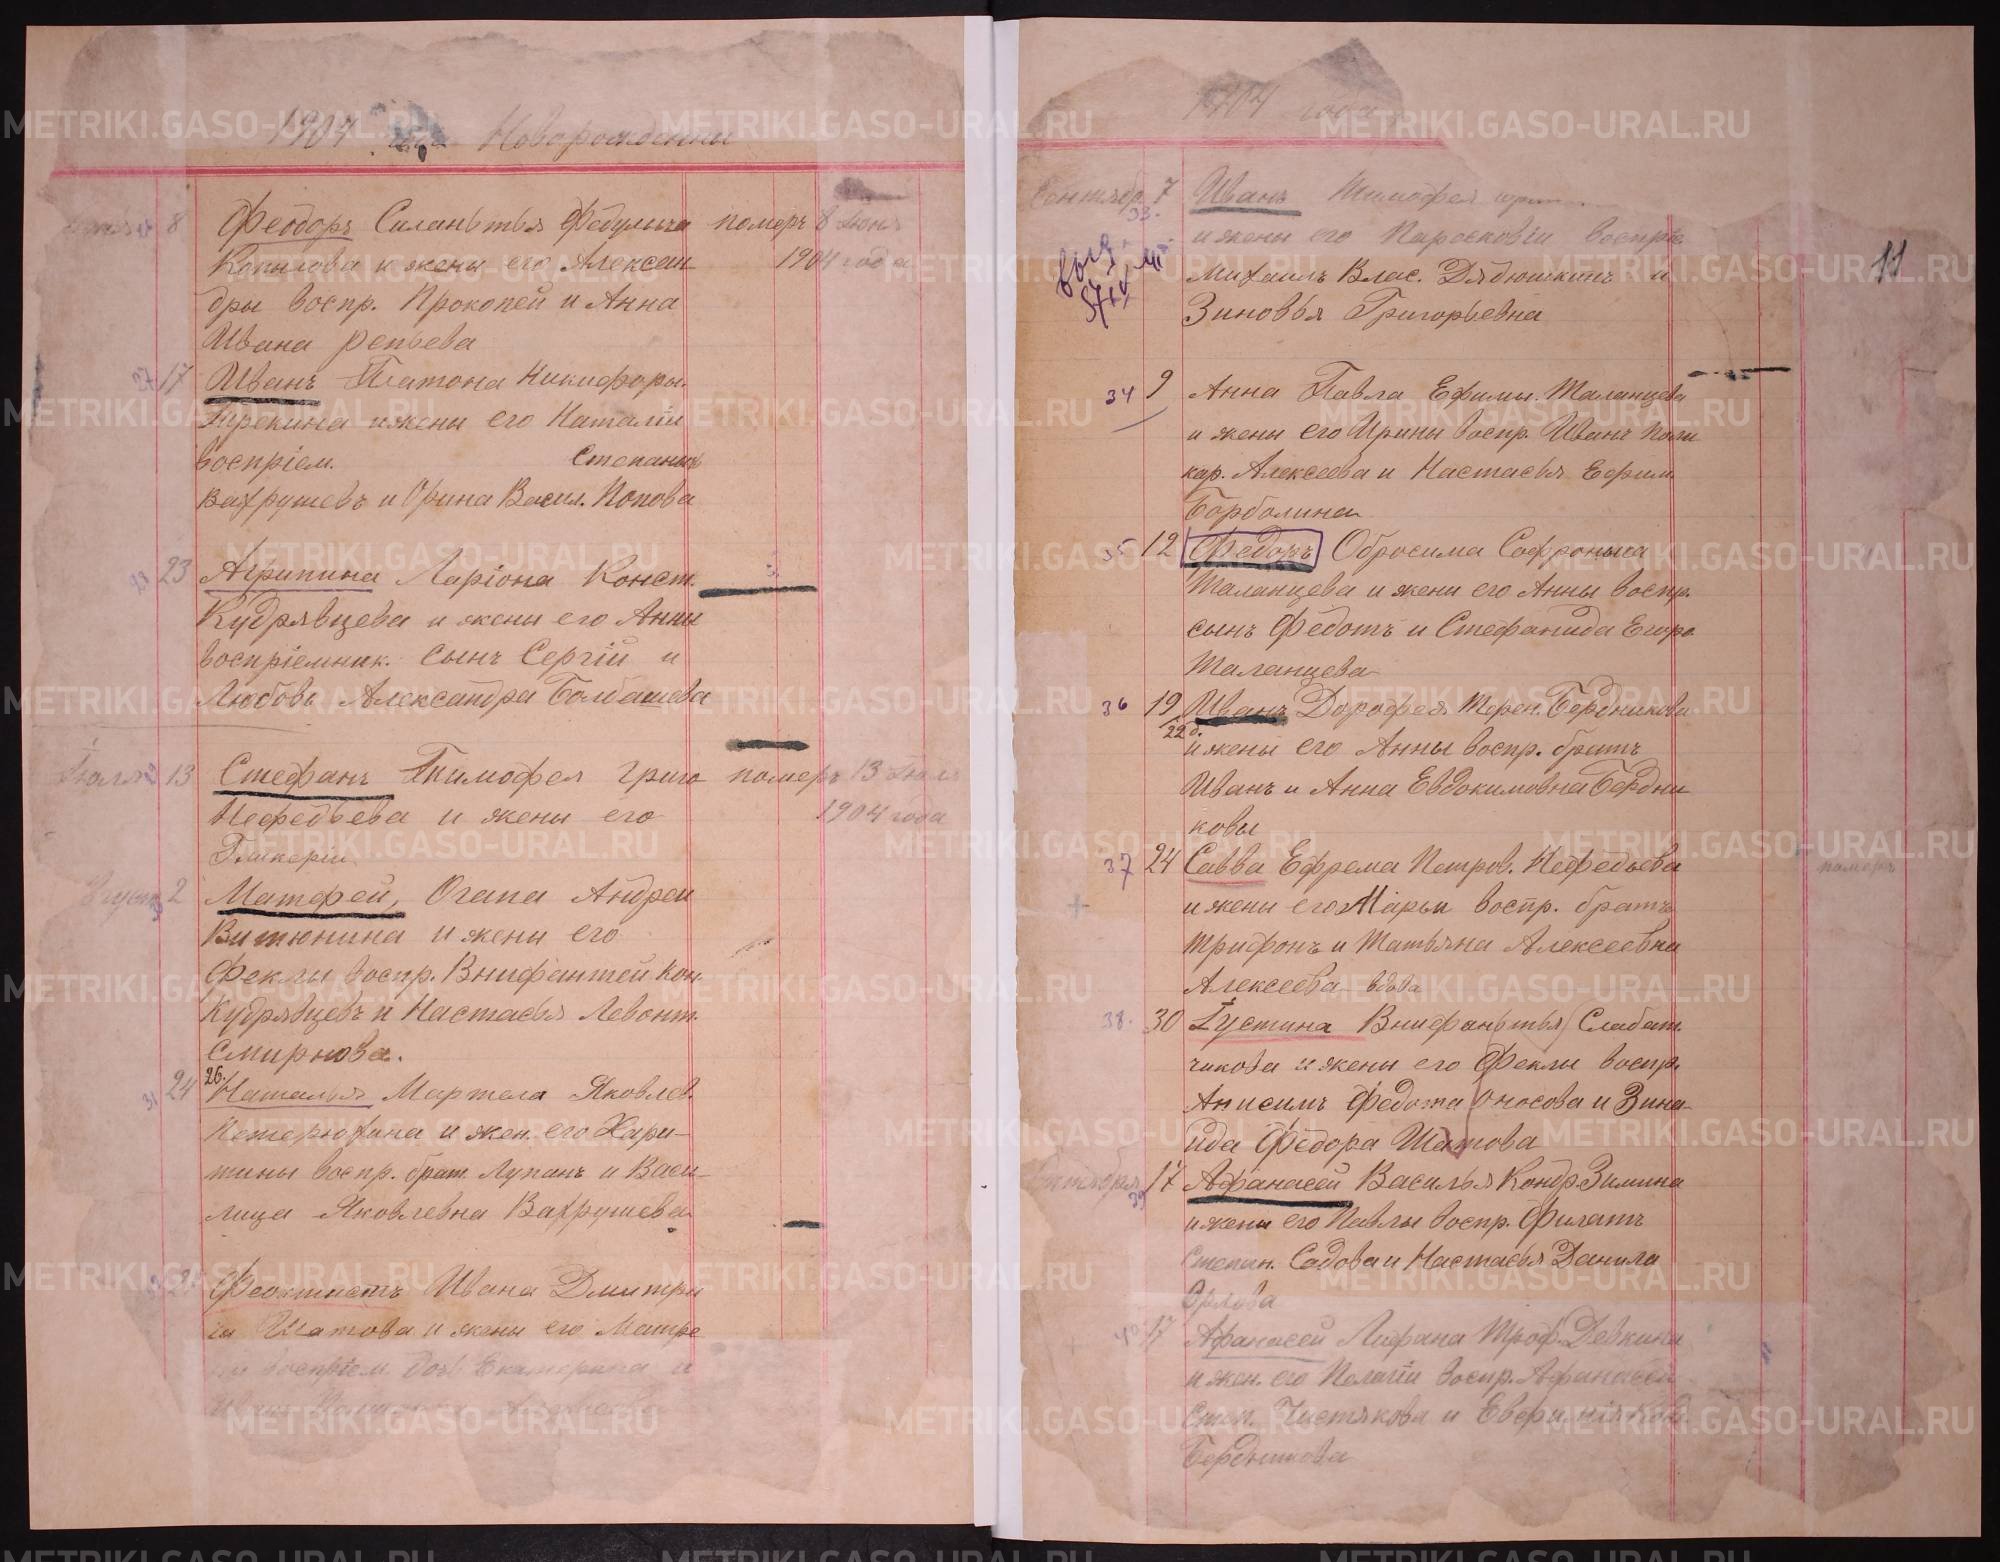 1904 года Новорожденны
8 Феодоръ Силантья Федулыча померъ 8 Июня
Копылова и жены его Алексан 1904 года
дры воспр. Прокопей и Анна
Ивана Репьева
27 17 Иванъ Платона Никифоры.
жены его Наталіи
воспріем. Степанъ
Вахрушевъ и Орина Васил. Попова
23 Агрипина Ларіона Конст.
Кудрявцева и жены его Анны
воспріемник. сынъ Сергій и
Любовь Александра Болбашева
Іюля 13 Стефанъ Тимофея Григо померъ 13 Іюля
Нефедьева и жены его 1904 года
Гликеріи
2 Матфей, Огапа Андреи
Витюнина и жены его
Феклы воспр. Внифантей Кон.
Кудрявцевъ и Настасья Левонт.
Смирнова.
31 24 26 Наталья Мартела Яковлев.
и жен. его Хари-
тины воспр. брат. Лупанъ и Васи-
лица Яковлевна Вахрушева
Феоктистъ Ивана Дмитри
Шатова и жены его Матре
воспріем. доч. Екатерина и
1904 года
Сентябр 7 Иванъ Тимофея
33.
и жены его Парасковіи воспріе
Михаилъ Влас. Дядюшкинъ и
11
Зиновья Григорьевна
34 9 Анна Павла Ефимы. Таланцева
и жены его Ирины воспр. Иванъ Поли
кар. Алексеева и Настасья Ефрим.
Борболина
35 12 Федоръ Обросима Софроныча
Таланцева и жены его Анны воспр.
сынъ Федотъ и Стефанида Егора
Таланцева
36 19 Иванъ Дорофея Терен. Бердникова
22 д.
и жены его Анны воспр. братъ
Иванъ и Анна Евдокимовна Бердни
ковы
37 24 Савва Ефрема Петров. Нефедьева померъ
и жены его Марьи воспр. братъ
Трифонъ и Татьяна Алексеевна
Алексеева вдова
38. 30 Густина Внифантья Слабат.
чикова и жены его Феклы воспр.
Анисимъ Федота Оносова и Зина-
ида Федора Шатова
17 Афанасей Василья Кондр. Зимина
39
и жены его Павлы воспр. Филатъ
Степан. Садова и Настасья Данила
Орлова
40 17 Афанасей Лифана Троф. Девкина
и жен. его Пелагіи воспр. Афанасей
Степ. Чистякова и Евфимія Кон.
Бердникова
METRIKI.GASO-URAL.RU